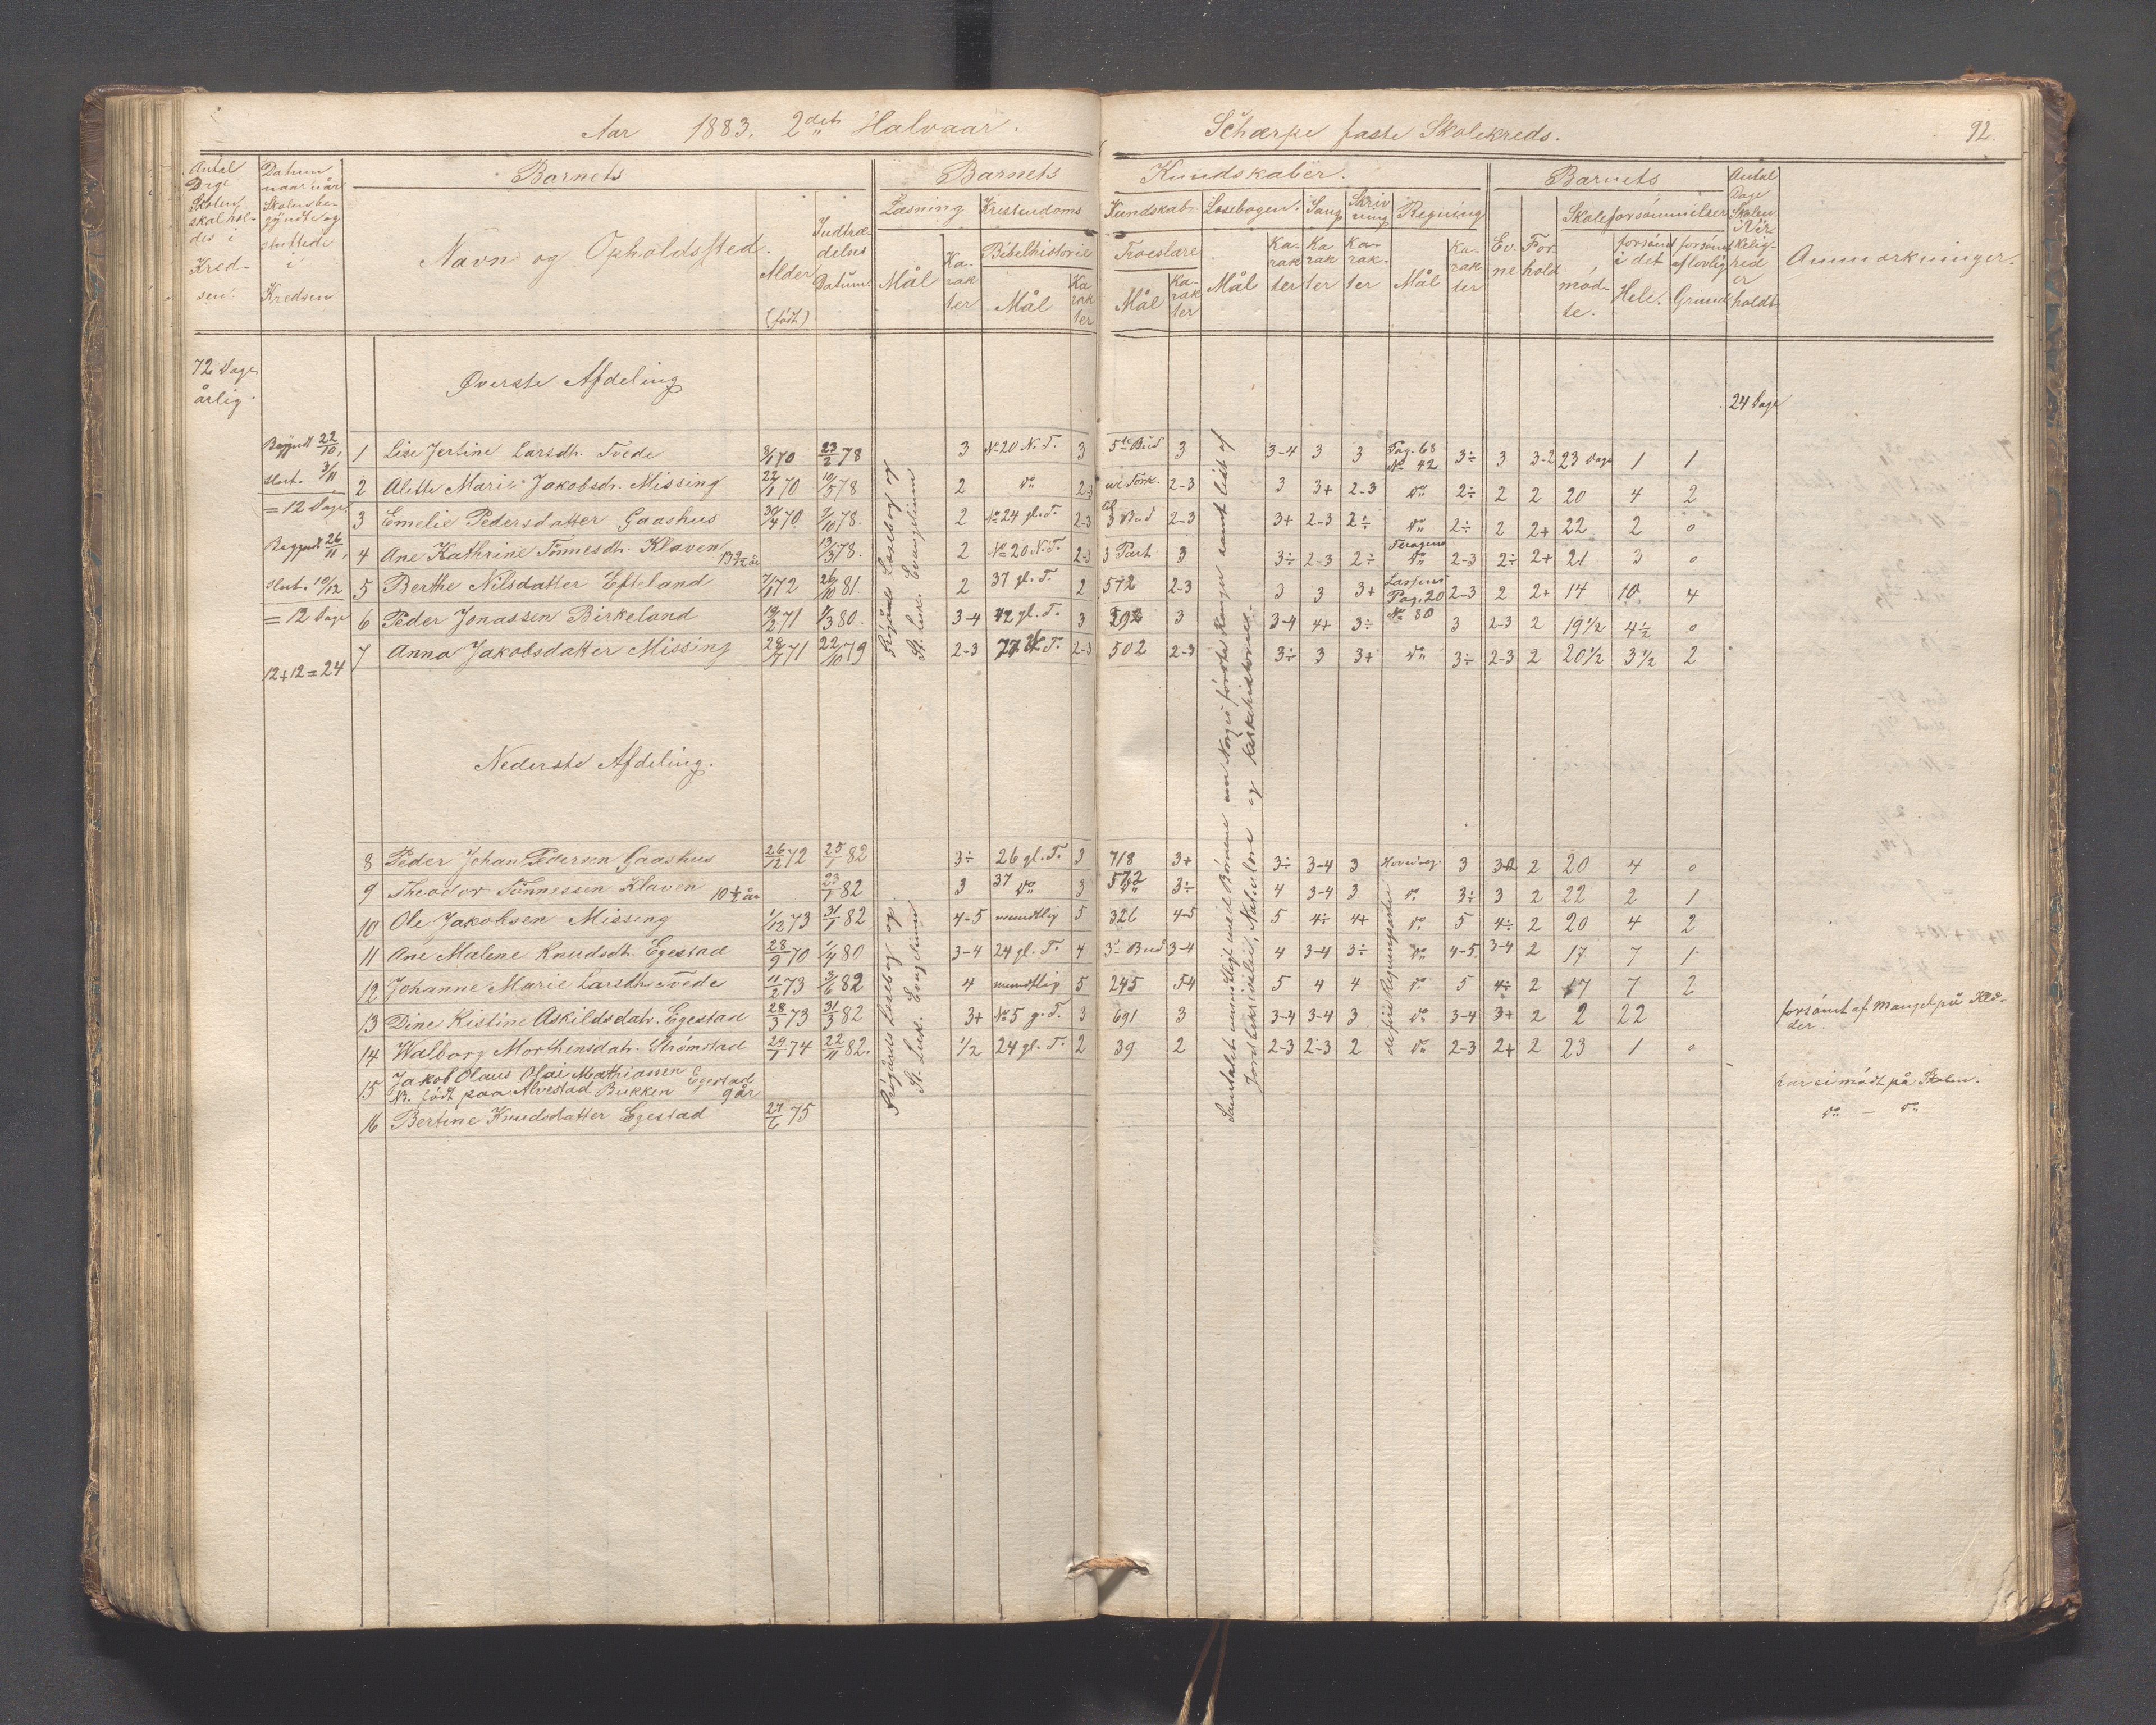 Aar 1883. 2det Halvaar.
Schærpe faste Skolekreds. 92.
Antal Dage Skolen skal holdes i Kredsen.
Datum naar når Skolen begyndte og sluttede i Kredsen
Barnets
Navn og Opholdssted. Alder (født) Indtrædelses Datum.
Barnets Kundskaber.
Læsning Mål Karakter
Kristendoms Kundskab.
Bibelhistorie Mål Karakter
Troeslære Mål Karakter
Læsebogen. Mål Karakter
Sang Karakter
Skrivning Karakter
Regning Mål Karakter
Barnets
Evne Forhold
Skoleforsømmelser
mødte. forsømt i det Hele. forsømt af lovlig Grund
Antal Dage Skolen i Virkelighed er holdt
Anmærkninger.
72 Dage årlig.
Øverste Afdeling
24 Dage
Begyndt 22/10,
slut. 3/11
= 12 Dage
Begyndt 26/11,
slut. 10/12
= 12 Dage
12+12=24
1 Lise Jertine Larsdtr. Tvede 8/1 70 23/2 78 3 No 20 N. T. 3 5te Bud 3 3-4 3 3 Pag. 68 No 42 3÷ 3 3-2 23 Dage 1 1
2 Alette Marie Jakobsdr. Missing 22/1 70 10/5 78 2 do 2-3 2-3 3 3+ 2-3 do 2÷ 2 2 20 4 2
3 Emelie Pedersdatter Gaashus 30/4 70 2/10 78. 2 No 24 gl. T. 2-3 3 Bud 2-3 3+ 2-3 2÷ do 2÷ 2 2+ 22 2 0
4 Ane Kathrine Tønnesdtr. Klaven 13 1/2 år 13/3 78. 2 No 20 N. T. 2-3 3 Part 3 3÷ 2-3 2÷ do 2-3 2÷ 2+ 21 3 0
5 Berthe Nilsdatter Efteland 7/1 72 26/10 81 2 37 gl. T. 2 572 2-3 3 3 3+ Pag. 20 No 80 2-3 2 2+ 14 10 4
6 Peder Jonassen Birkeland 19/2 71 1/3 80. 3-4 42 gl. T. 3 502 3 3-4 4+ 3÷ 3 2-3 2 19 1/2 4 1/2 0
7 Anna Jakobsdatter Missing 22/10 79 2-3 2-3 502 2-3 3÷ 3 3+ do 3÷ 2-3 2 20 1/2 3 1/2 2
Nederste Afdeling.
8 Peder Johan Pedersen Gaashus 26/12 72 25/1 82 3÷ 26 gl. T. 3 718 3+ 3÷ 3-4 3 3 2 20 4 0
9 Theodor Tønnessen Klaven 10 1/2 år 23/1 82 3 37 do 3 572 3÷ 4 3-4 3 do 3÷ 3 2 22 2 1
10 Ole Jakobsen Missing 1/12 73 31/1 82 4-5 mundtlig 5 326 4-5 5 4÷ 4+ do 5 4÷ 2 20 4 2
11 Ane Malene Knudsdtr. Egestad 28/9 70 1/4 80 3-4 24 gl. T. 4 3. Bud 3-4 4 3-4 3÷ do 4-5 3-4 2 17 7 1
12 Johanne Marie Larsdtr Tvede 11/2 73 3/6 82 4 mundtlig 5 245 5-4 5 4 4 do 5 4÷ 2 17 7 2
13 Dine Kistine Askildsdatr. Egestad 28/3 73 31/3 82 3+ No 5 g. T. 3 691 3 3-4 3-4 3 do 3-4 3+ 2 2 22 forsømt af Mangel på Klæder.
14 Walborg Morthensdatr. Strømstad 29/1 74 22/11 82. 1/2 24 gl. T. 2 39 2 2-3 2-3 2 do 2-3 2+ 2 23 1 0
15 Jakob Olaus Olai Mathiassen Egestad
NB. født paa Alvestad Bukken 9 år har ei mødt på Skolen.
16 Bertine Knudsdatter Egestad 27/6 75 do — do
Læsebog og St. Luk. Evangelium
Læsebog og St. Luk. Evangelium
Samtalet mundtligt med Børnene om Norges første Konger samt lidt af
Jordbeskrivelse, Naturlære og Kirkehistorie.
de fire Regningsarter